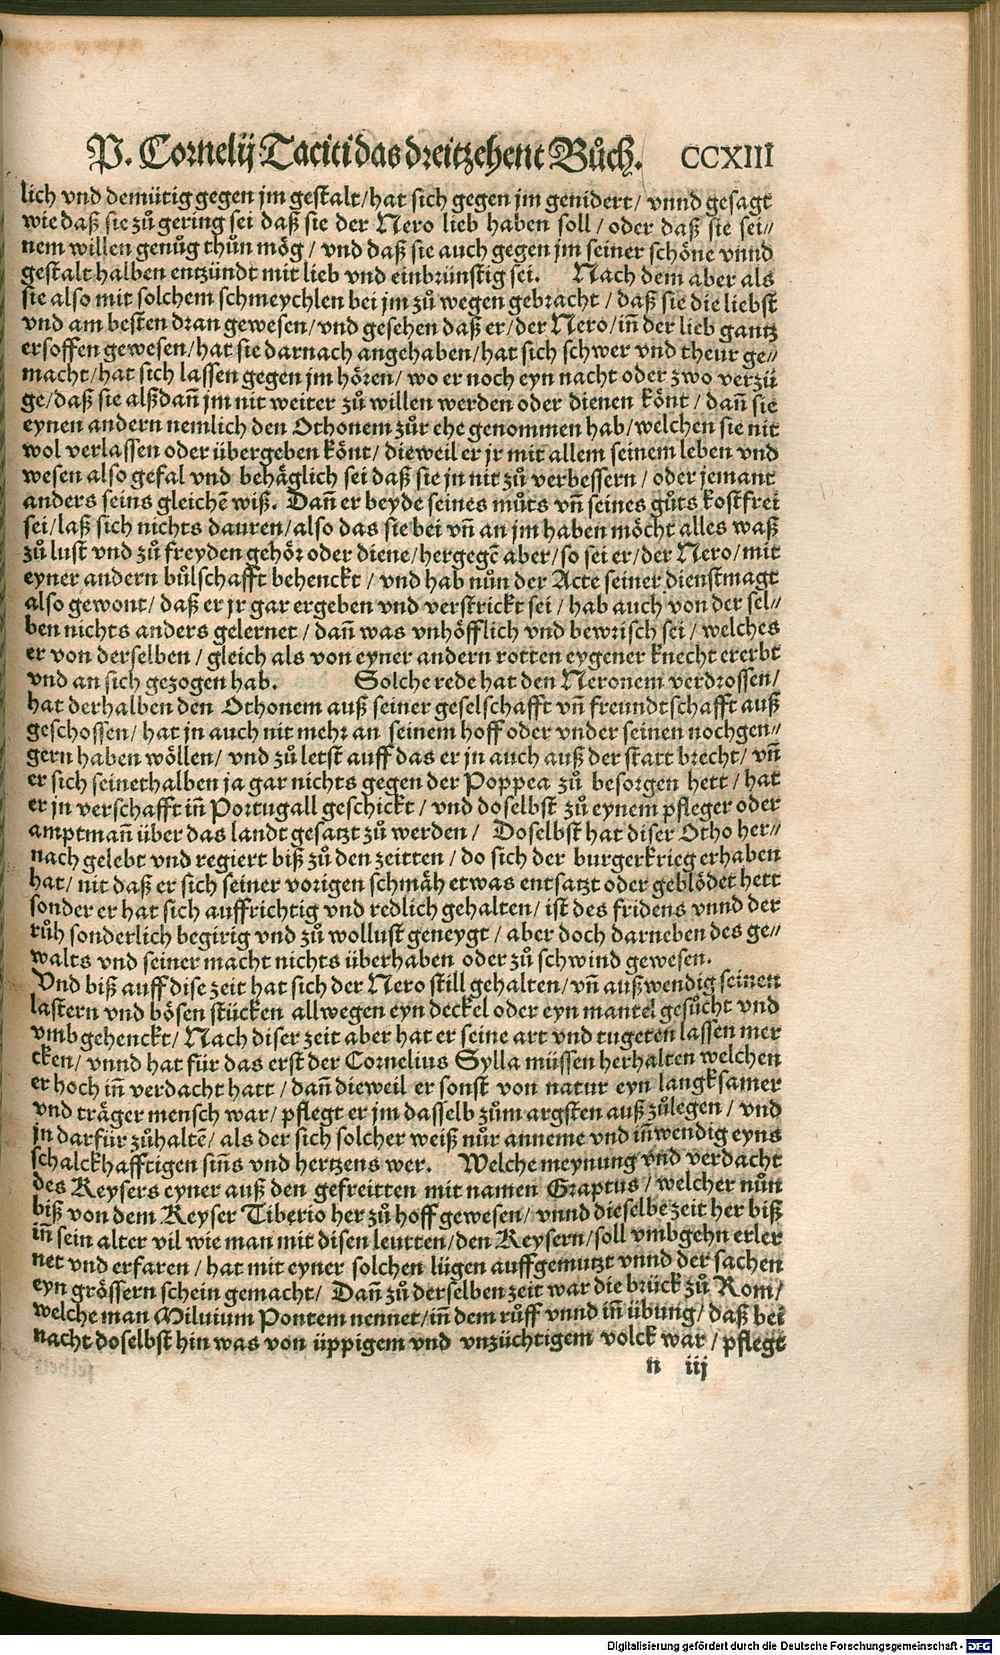 P. Cornelij Taciti das dreitzehent Bůch. CCXIII
lich vnd demütig gegen jm gestalt/hat sich gegen jm genidert/ vnnd gesagt
wie daß sie zů gering sei daß sie der Nero lieb haben soll / oder daß sie sei⸗
nem willen genůg thůn mög / vnd daß sie auch gegen jm seiner schöne vnnd
gestalt halben entzündt mit lieb vnd einbrünstig sei. Nach dem aber als
sie also mit solchem schmeychlen bei jm zů wegen gebracht / daß sie die liebst
vnd am besten dran gewesen/vnd gesehen daß er/der Nero/in̄ der lieb gantz
ersoffen gewesen/hat sie darnach angehaben/hat sich schwer vnd theur ge⸗
macht/hat sich lassen gegen jm hören/ wo er noch eyn nacht oder zwo verzü
ge/daß sie alßdan̄ jm nit weiter zů willen werden oder dienen könt / dan̄ sie
eynen andern nemlich den Othonem zůr ehe genommen hab/welchen sie nit
wol verlassen oder übergeben könt/ dieweil er jr mit allem seinem leben vnd
wesen also gefal vnd behäglich sei daß sie jn nit zů verbessern / oder jemant
anders seins gleichē wiß. Dan̄ er beyde seines můts vn̄ seines gůts kostfrei
sei/laß sich nichts dauren/also das sie bei vn̄ an jm haben möcht alles waß
zů lust vnd zů freyden gehör oder diene/hergegē aber/so sei er/der Nero/mit
eyner andern bůlschafft behenckt / vnd hab nůn der Acte seiner dienstmagt
also gewont/ daß er jr gar ergeben vnd verstrickt sei / hab auch von der sel⸗
ben nichts anders gelernet / dan̄ was vnhöfflich vnd bewrisch sei / welches
er von derselben / gleich als von eyner andern rotten eygener knecht ererbt
vnd an sich gezogen hab. Solche rede hat den Neronem verdrossen/
hat derhalben den Othonem auß seiner geselschafft vn̄ freundtschafft auß
geschossen/ hat jn auch nit mehr an seinem hoff oder vnder seinen nochgen⸗
gern haben wöllen/ vnd zů letst auff das er jn auch auß der statt brecht/ vn̄
er sich seinethalben ja gar nichts gegen der Poppea zů besorgen hett/ hat
er jn verschafft in̄ Portugall geschickt / vnd doselbst zů eynem pfleger oder
amptman̄ über das landt gesatzt zů werden / Doselbst hat diser Otho her⸗
nach gelebt vnd regiert biß zů den zeitten / do sich der burgerkrieg erhaben
hat/ nit daß er sich seiner vorigen schmäh etwas entsatzt oder geblödet hett
sonder er hat sich auffrichtig vnd redlich gehalten/ ist des fridens vnnd der
růh sonderlich begirig vnd zů wollust geneygt / aber doch darneben des ge⸗
walts vnd seiner macht nichts überhaben oder zů schwind gewesen.
Vnd biß auff dise zeit hat sich der Nero still gehalten/ vn̄ außwendig seinen
lastern vnd bösen stücken allwegen eyn deckel oder eyn mantel gesůcht vnd
vmbgehenckt/ Nach diser zeit aber hat er seine art vnd tugeten lassen mer
cken/ vnnd hat für das erst der Cornelius Sylla müssen herhalten welchen
er hoch in̄ verdacht hatt / dan̄ dieweil er sonst von natur eyn langksamer
vnd träger mensch war/ pflegt er jm dasselb zům argsten auß zůlegen / vnd
jn darfür zůhaltē/ als der sich solcher weiß nůr anneme vnd in̄wendig eyns
schalckhafftigen sin̄s vnd hertzens wer. Welche meynung vnd verdacht
des Keysers eyner auß den gefreitten mit namen Graptus/ welcher nůn
biß von dem Keyser Tiberio her zů hoff gewesen/ vnnd dieselbe zeit her biß
in̄ sein alter vil wie man mit disen leutten/den Keysern/soll vmbgehn erler
net vnd erfaren / hat mit eyner solchen lügen auffgemutzt vnnd der sachen
eyn grössern schein gemacht/ Dan̄ zů derselben zeit war die brück zů Rom/
welche man Miluium Pontem nennet/in̄ dem růff vnnd in̄ übung/ daß bei
nacht doselbst hin was von üppigem vnd vnzüchtigem volck war / pflegt
n iij
Digitalisierung gefördert durch die Deutsche Forschungsgemeinschaft - DFG